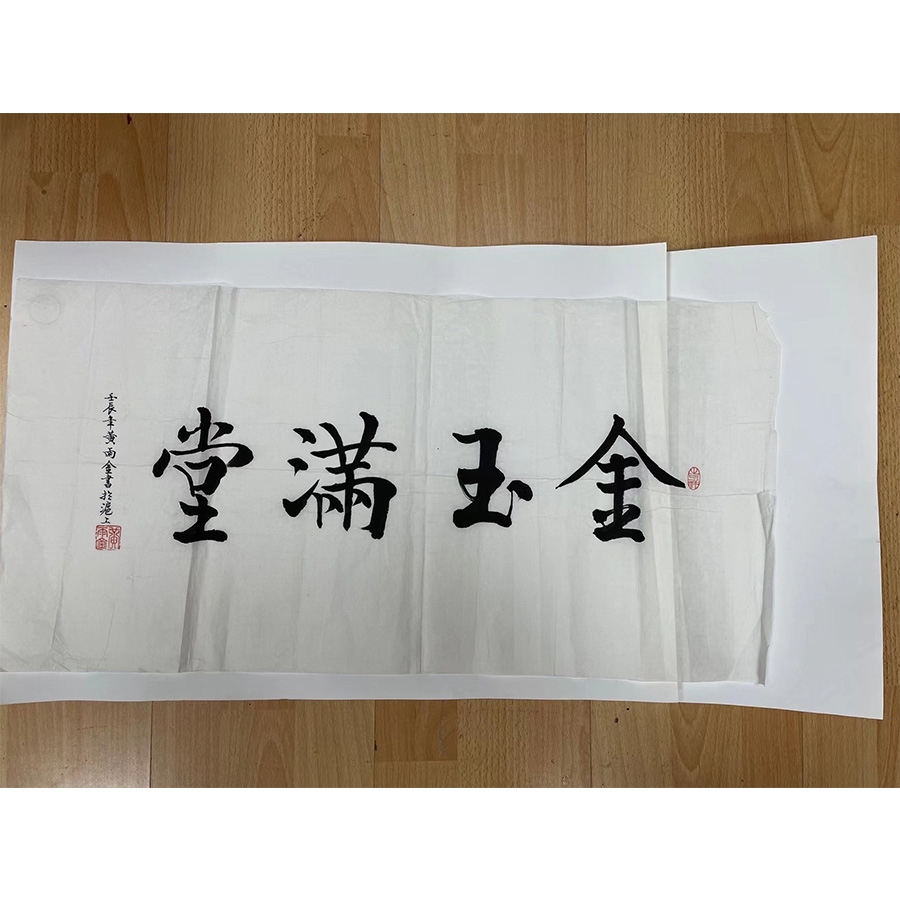 金玉滿堂
壬辰年黄雨金書於滬上